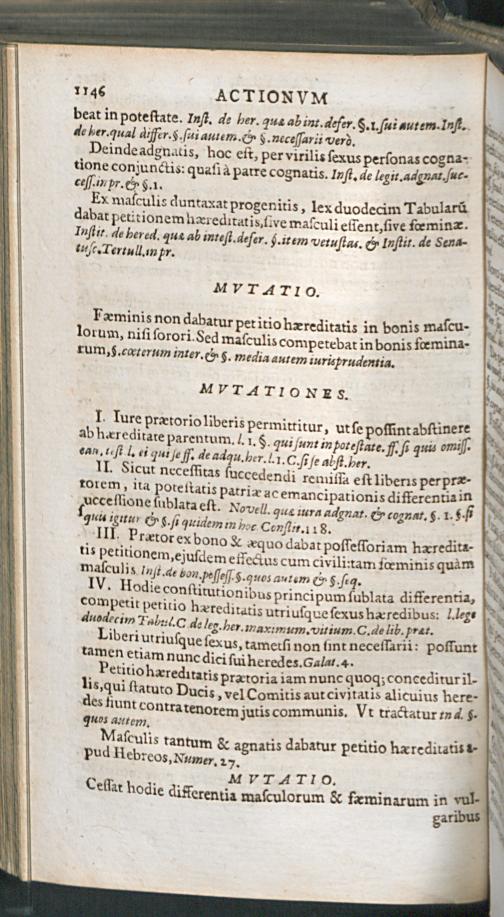 1146 ACTIONVM
beat in poteſtate. Inſt. de her. quæ ab int. defer. §.1. ſui autem. Inſt.
de her. qual differ. §. ſui autem. & §. neceſſarii verò.
Deinde adgnatis, hoc eſt, per virilis ſexus perſonas cogna-
tione conjunctis: quaſi à patre cognatis. Inſt. de legit. adgnat. ſuc-
ceſſ. in pr. & §.1.
Ex maſculis duntaxat progenitis, lex duodecim Tabularũ
dabat petitionem hæreditatis, ſive maſculi eſſent, ſive fœminæ.
Inſtit. de hered. quæ ab inteſt. defer. §. item vetuſtas. & Inſtit. de Sena-
tuſc. Tertull. in pr.
MVTATIO.
Fæminis non dabatur petitio hæreditatis in bonis maſcu-
lorum, niſi ſorori. Sed maſculis competebat in bonis fœmina-
rum, §. cæterum inter. & §. media autem iurisprudentia.
MVTATIONES.
I. Iure prætorio liberis permittitur, ut ſe poſſint abſtinere
ab hæreditate parentum. l. 1. §. qui ſunt in poteſtate. ff. ſi quis omiſſ.
cau. teſt l. ei qui ſe ff. de adqu. her. l. 1. C. ſi ſe abſt. her.
II. Sicut neceſſitas ſuccedendi remiſſa eſt liberis per præ-
torem, ita poteſtatis patriæ ac emancipationis differentia in
ucceſſione ſublata eſt. Novell. quæ iura adgnat. & cognat. §. 1. §. ſi
quis igitur & §. ſi quidem in hoc Conſtit. 118.
III. Prætor ex bono & æquo dabat poſſeſſoriam hæredita-
tis petitionem, ejuſdem effectus cum civili: tam fœminis quàm
maſculis Inſt. de bon. poſſeſſ. §. quos autem & §. ſeq.
IV. Hodie conſtitutionibus principum ſublata differentia,
competit petitio hæreditatis utriuſque ſexus hæredibus: l. lege
duodecim Tabul. C. de leg. her. maximum. vitium. C. de lib. præt.
Liberi utriuſque ſexus, tametſi non ſint neceſſarii: poſſunt
tamen etiam nunc dici ſui heredes. Galat. 4.
Petitio hæreditatis prætoria iam nunc quoq; conceditur il-
lis, qui ſtatuto Ducis, vel Comitis aut civitatis alicuius here-
des fiunt contra tenorem juris communis. Vt tractatur in d. §.
quos autem.
Maſculis tantum & agnatis dabatur petitio hæreditatis a-
pud Hebreos, Numer. 27.
MVTATIO.
Ceſſat hodie differentia maſculorum & fæminarum in vul-
garibus